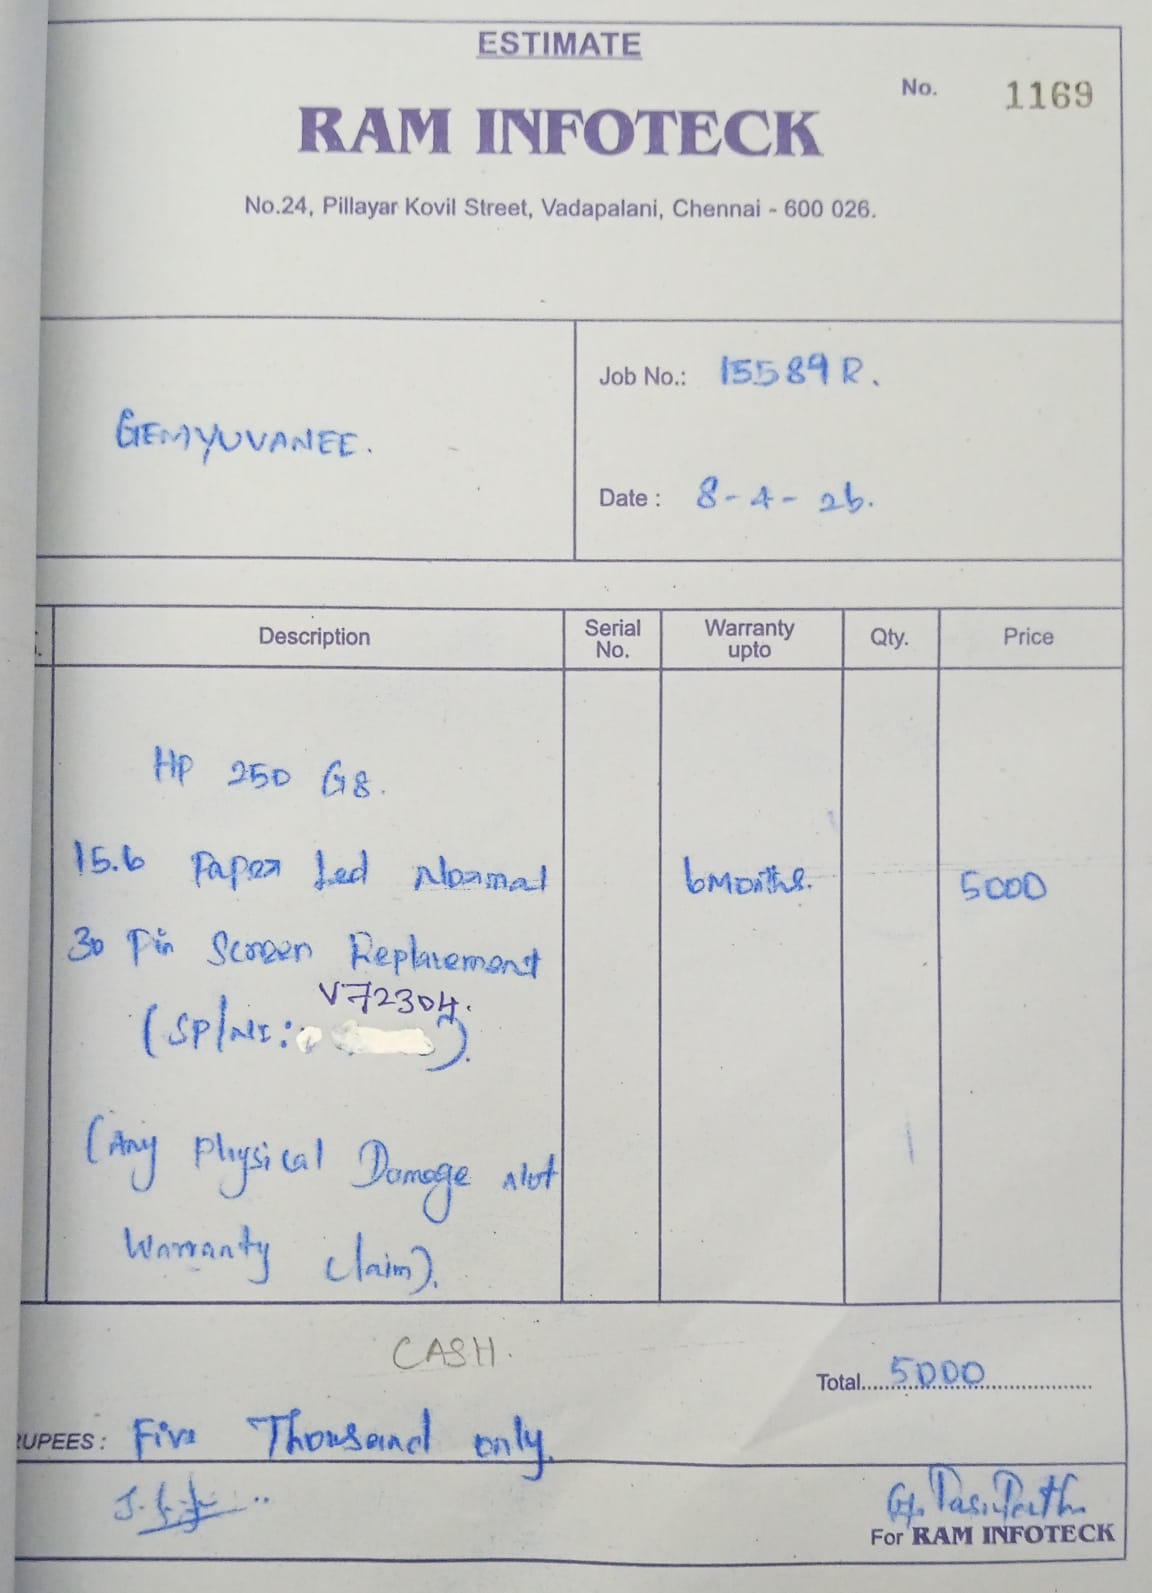 ESTIMATE
No. 1169
RAM INFOTECK
No.24, Pillayar Kovil Street, Vadapalani, Chennai - 600 026.
GEMYUVANEE.
Job No.: 15589 R.
Date : 8-4-26.
Description Serial No. Warranty upto Qty. Price
HP 250 G8.
15.6 Paper Led Normal 6 Months. 5000
30 Pin Screen Replacement
V72304.
(SP/NI: ).
(Any Physical Damage Not
Warranty Claim).
CASH.
Total 5000
RUPEES : Five Thousand only
For RAM INFOTECK